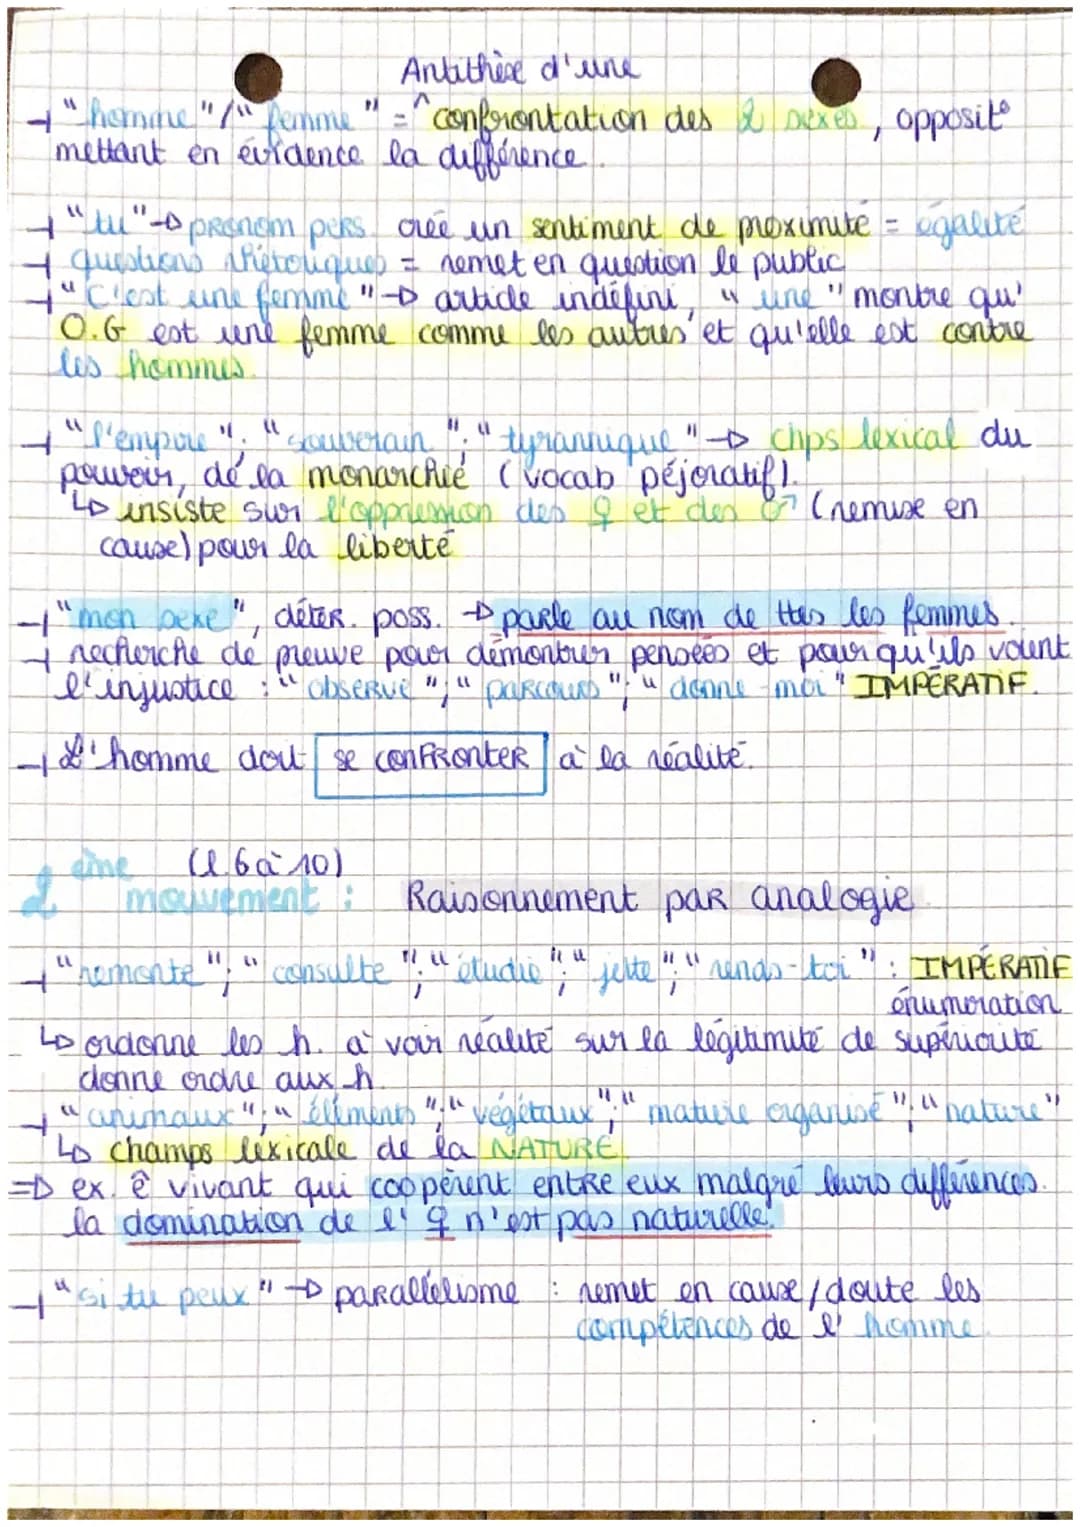 Antithèse d'une
→ "homme"/"femme" = ^confrontation des 2 sexes, opposit°
mettant en évidence la différence.
→ "tu" → pronom pers. crée un sentiment de proximité = égalité
→ questions rhétoriques = remet en question le public
→ "C'est une femme" → article indéfini, "une" montre qu'
O.G est une femme comme les autres et qu'elle est contre
les hommes.
→ "l'empire"; "souverain"; "tyrannique" → chps lexical du
pouvoir, de la monarchie (vocab péjoratif).
↳ insiste sur l'oppression des ♀ et des ♂ (remise en
cause) pour la liberté
→ "mon sexe", déter. poss. → parle au nom de ttes les femmes.
→ recherche de preuve pour démontrer pensées et pour qu'ils voient
l'injustice : "observe"; "parcours"; "donne-moi" IMPÉRATIF.
→ L'homme doit se confronter à la réalité.
(l.6 à 10)
2ème mouvement : Raisonnement par analogie
→ "remonte"; "consulte"; "étudie"; "jette"; "rends-toi" : IMPÉRATIF
énumération
↳ ordonne les h. à voir réalité sur la légitimité de supériorité
donne ordre aux h.
→ "animaux"; "éléments"; "végétaux"; "matière organisé"; "nature"
↳ champs lexicale de la NATURE
⇒ ex. ê vivant qui coopèrent entre eux malgré leurs différences.
la domination de l' ♀ n'est pas naturelle.
→ "si tu peux" → parallélisme : remet en cause/doute les
compétences de l' homme.